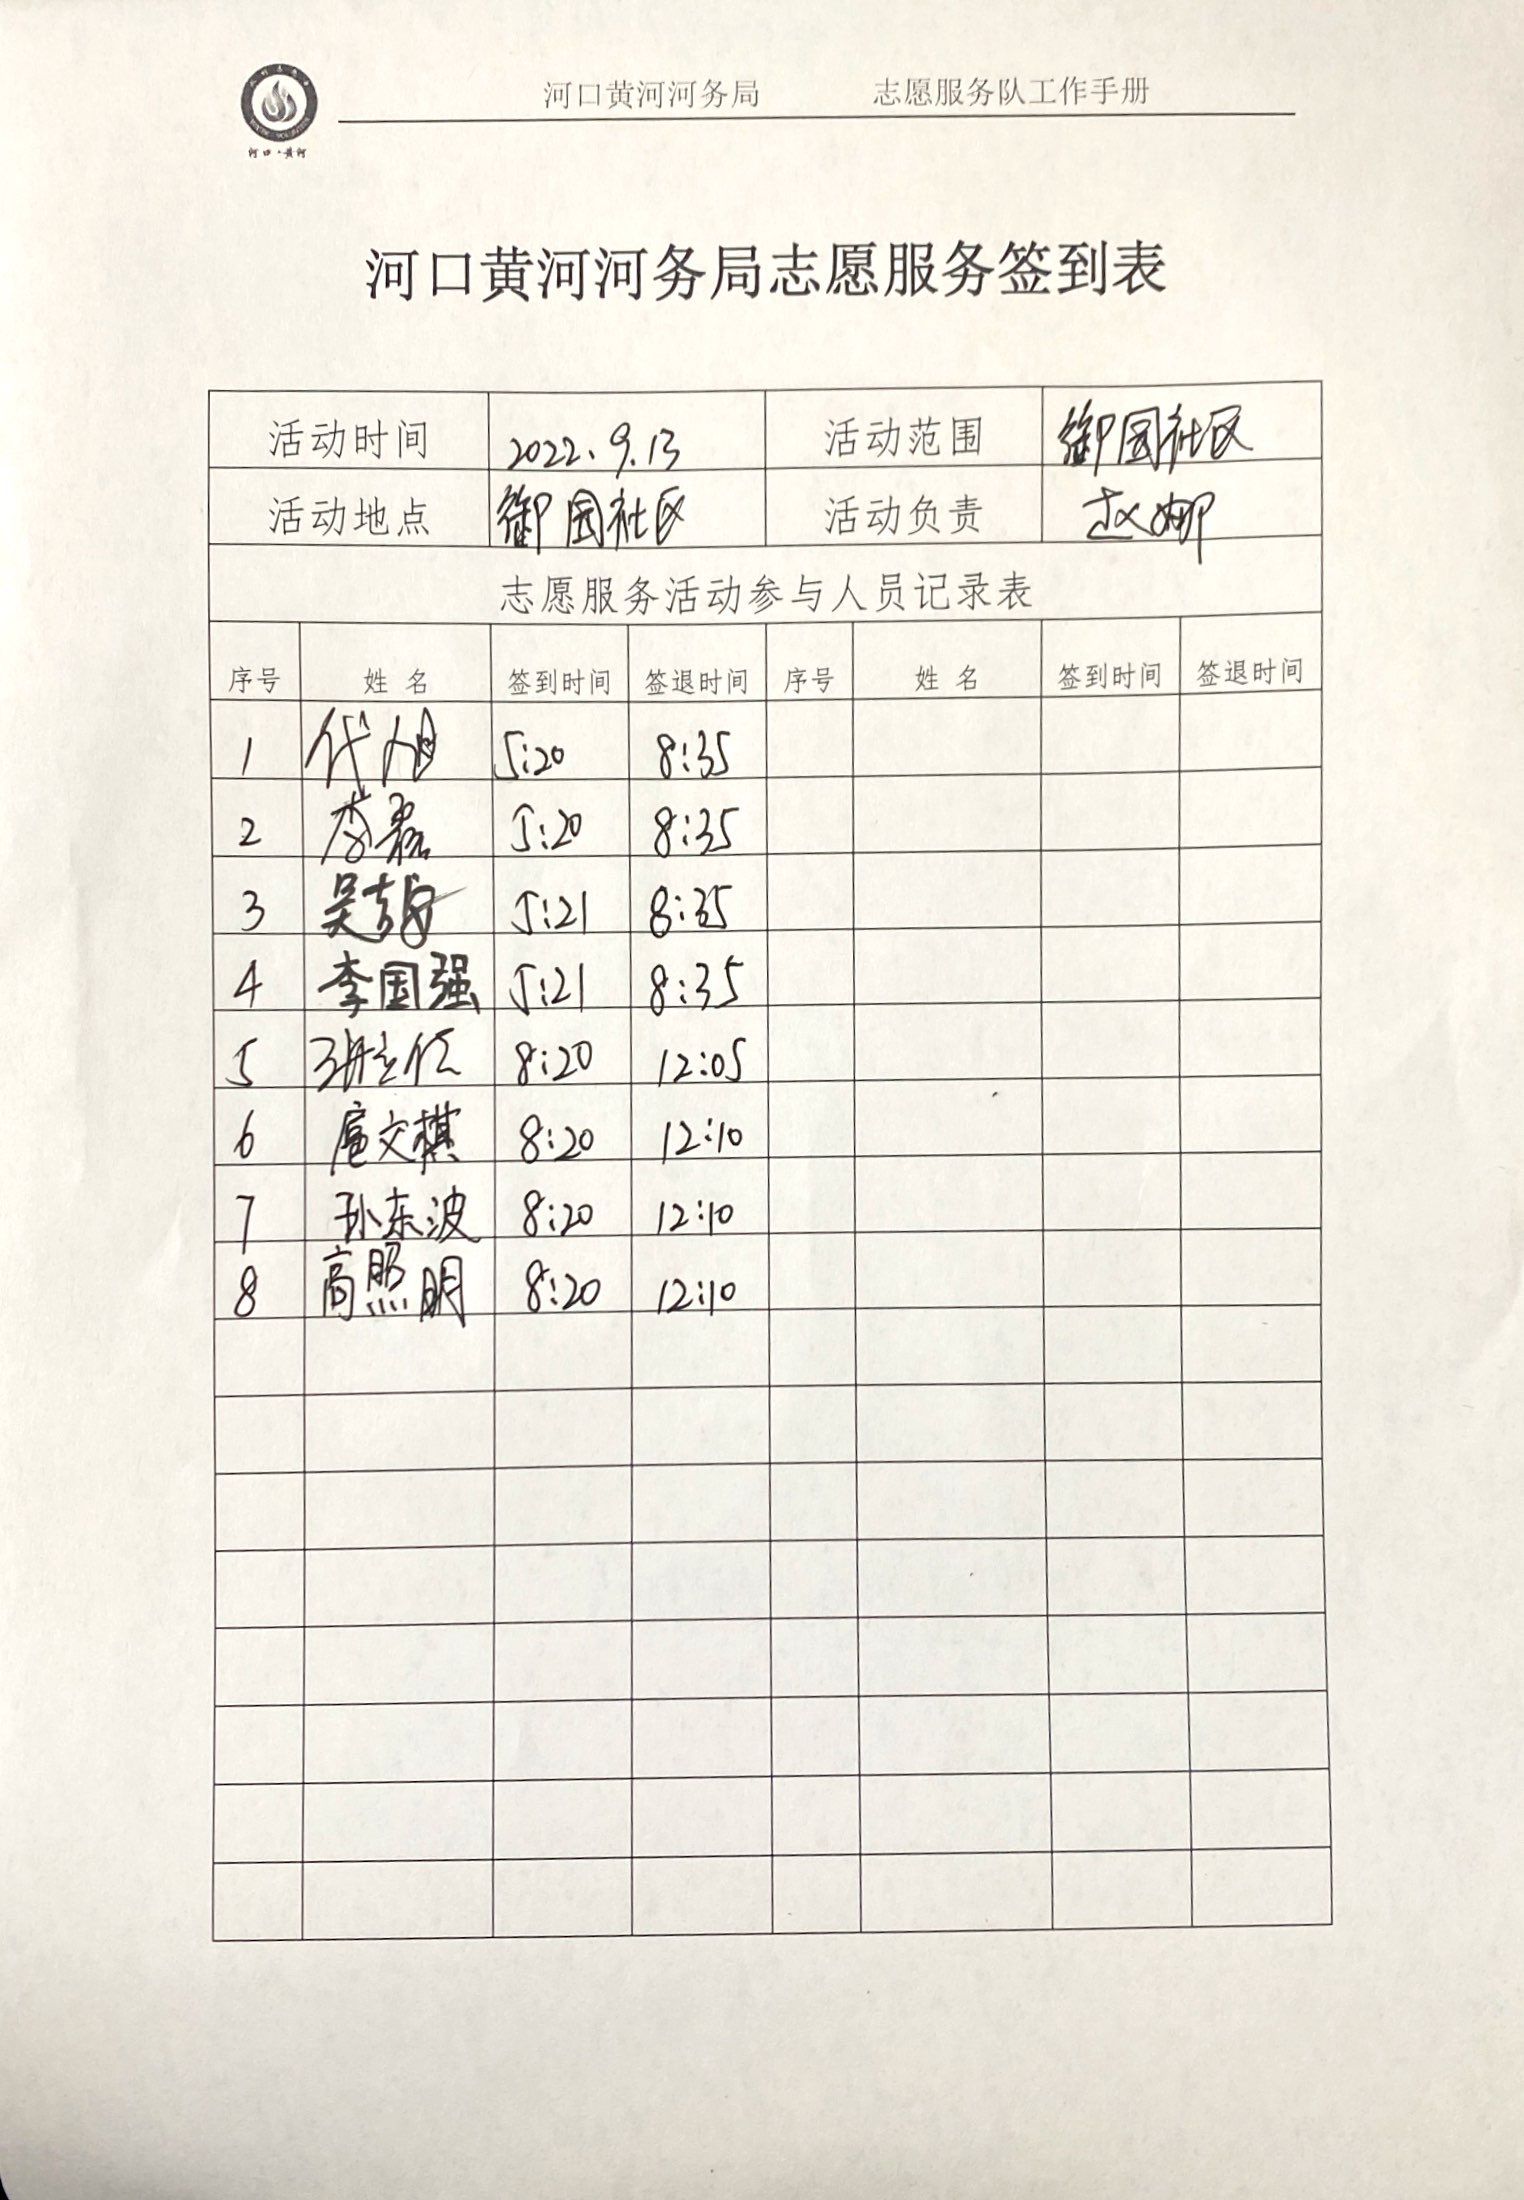 河口黄河河务局 志愿服务队工作手册
河口·黄河
河口黄河河务局志愿服务签到表
活动时间 2022.9.13 活动范围 御园社区
活动地点 御园社区 活动负责 赵娜
志愿服务活动参与人员记录表
序号 姓名 签到时间 签退时间 序号 姓名 签到时间 签退时间
1 代旭 5:20 8:35
2 李磊 5:20 8:35
3 吴 5:21 8:35
4 李国强 5:21 8:35
5 8:20 12:05
6 扈文棋 8:20 12:10
7 孙东波 8:20 12:10
8 高照明 8:20 12:10